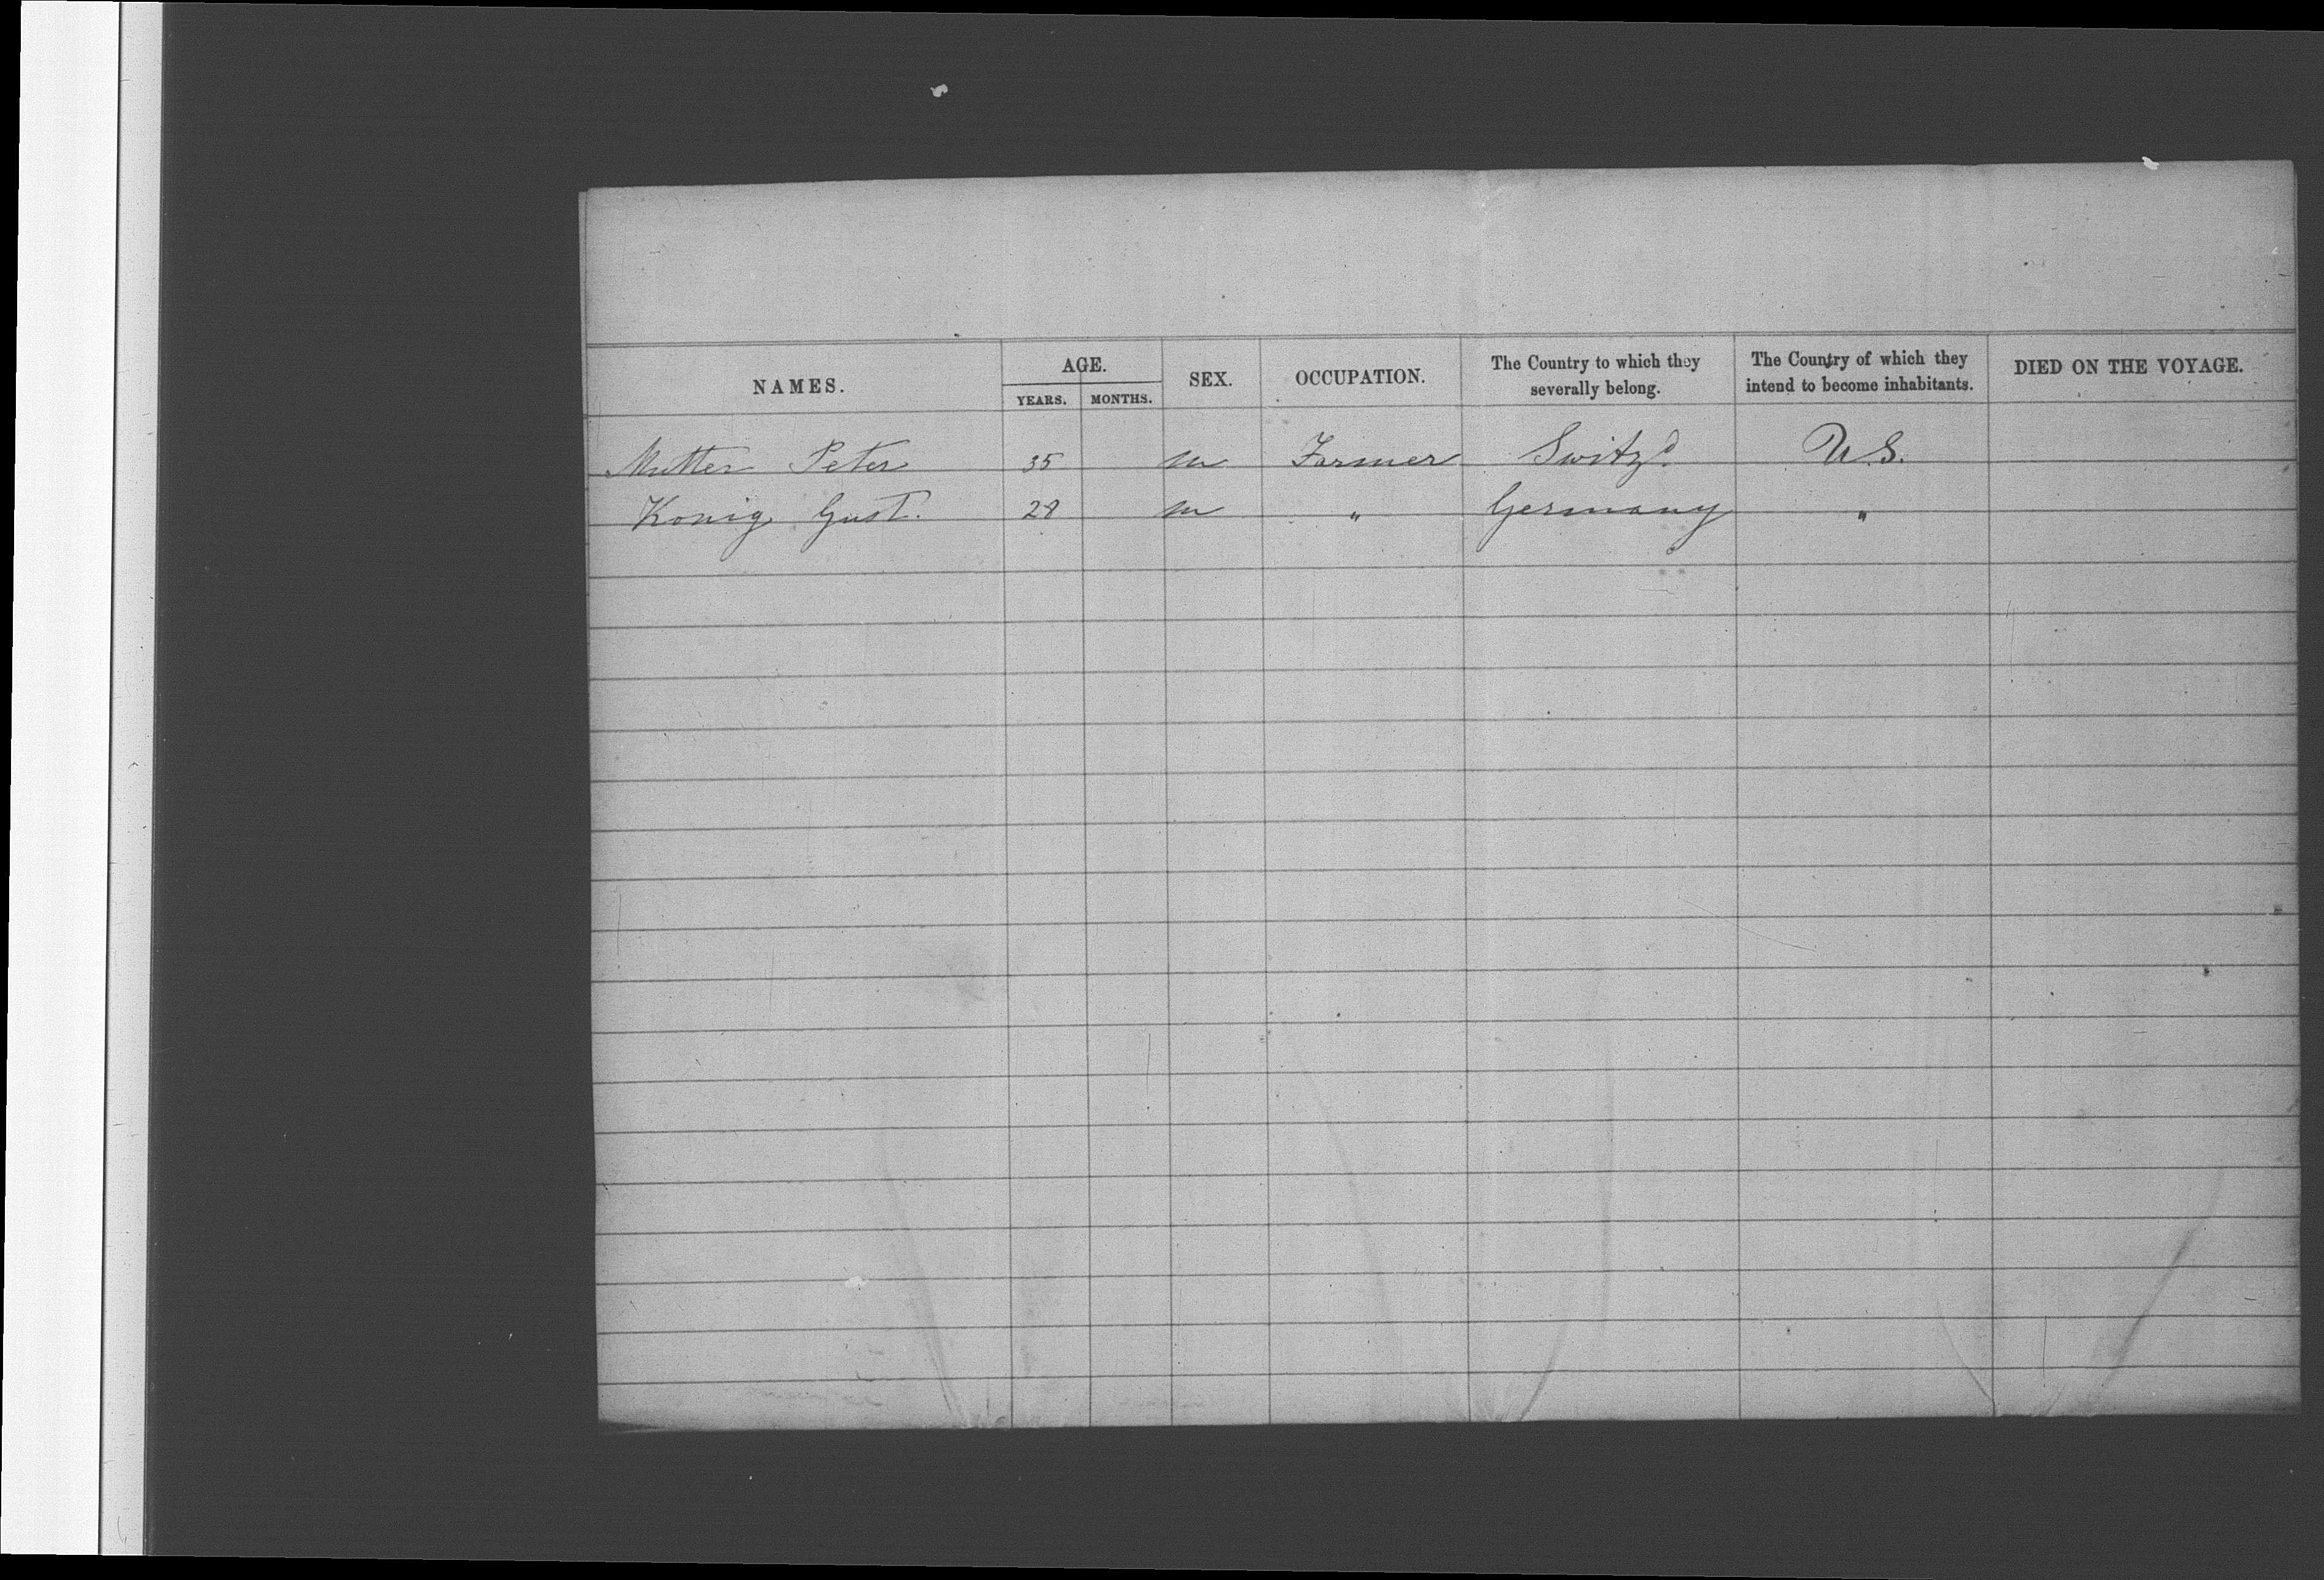 NAMES. AGE. YEARS. MONTHS. SEX. OCCUPATION. The Country to which they severally belong. The Country of which they intend to become inhabitants. DIED ON THE VOYAGE.
Mutter Peter 35 m Farmer Switzd. U.S.
Konig Gust. 28 m " Germany "